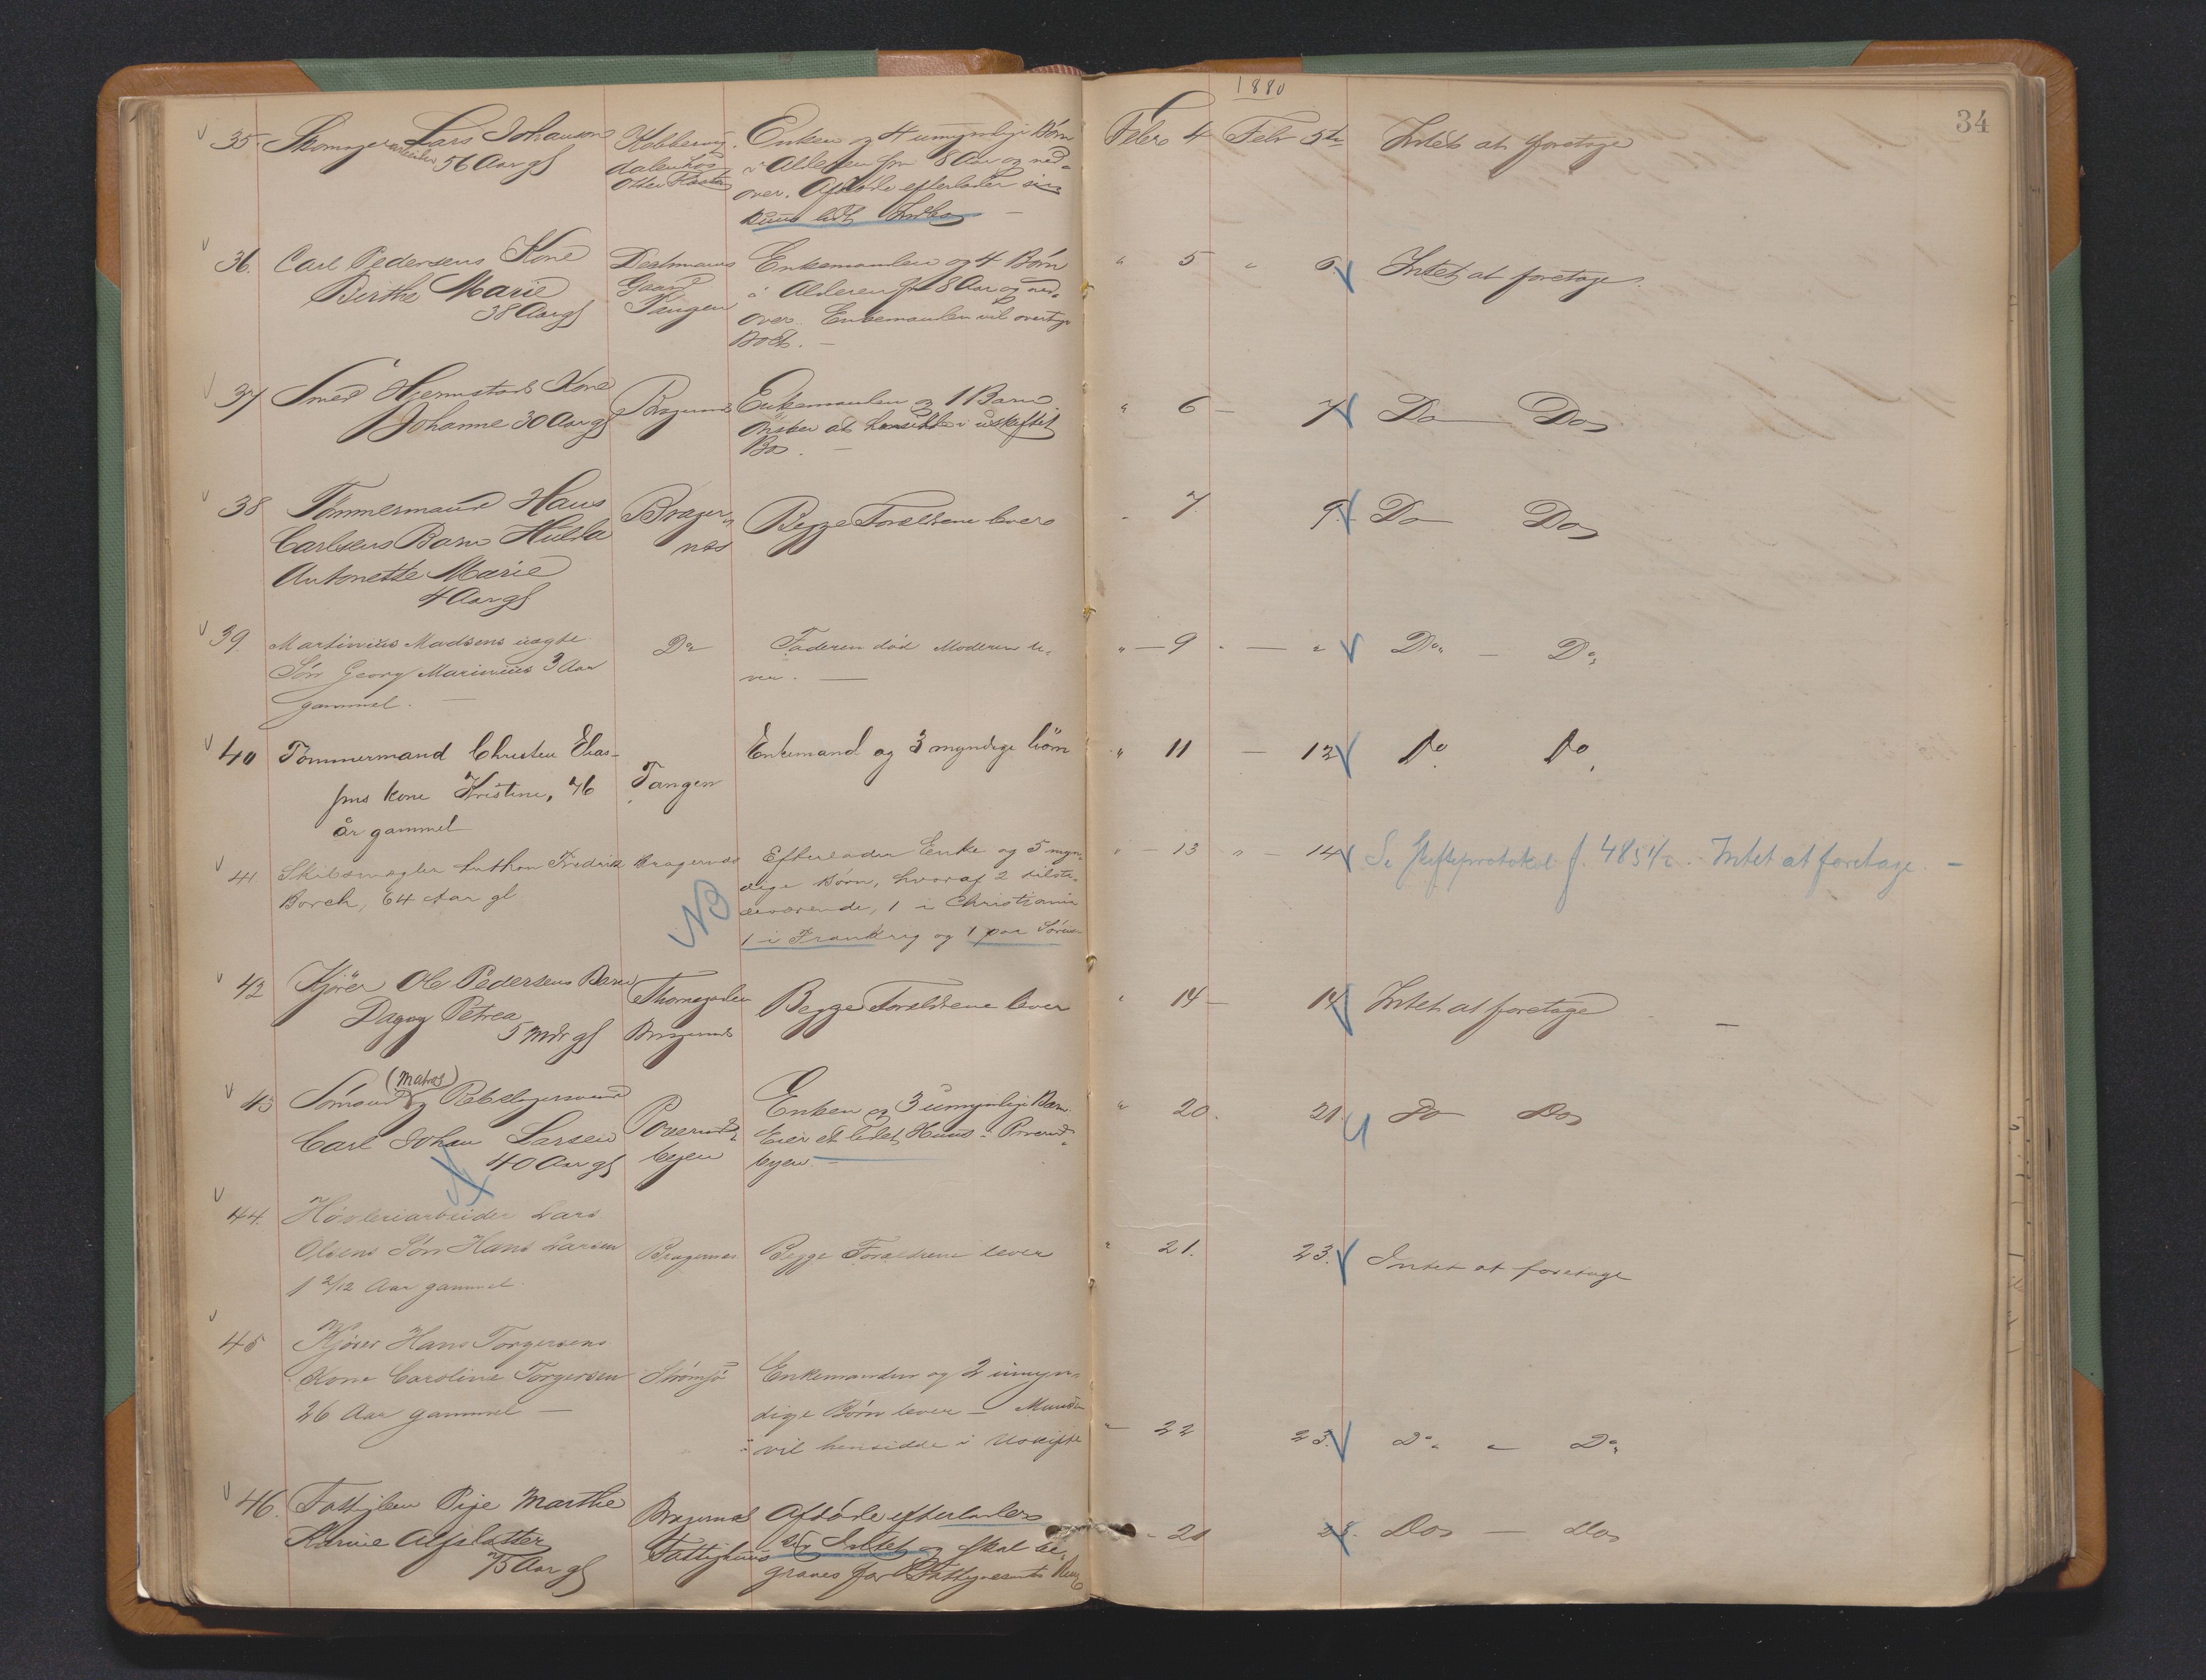 1880
34
35. Skomager Lars Johansen
arbeider 56 Aar gl
Kobbervig
dalen hos
Otter
Enken og 4 umyndige Børn
i Alderen fra 8 Aar og ned-
over. Afdøde efterlader sig
kuns lidt Indbo
Febr 4 Febr 5te Intet at foretage
36. Carl Pedersens Kone
Berthe Marie
38 Aar gl
Gaard
Tangen
Enkemanden og 4 Børn
i Alderen fra 8 Aar og ned-
over. Enkemanden vil overtage
Boet. —
" 5 " 6. Intet at foretage.
37 Smed Hjermstads Kone
Johanne 30 Aar gl
Bragernes
Enkemanden og 1 Barn
Ønsker at hensidde i uskiftet
Bo. —
" 6 — 7 Do — Do
38 Tømmermand Hans
Carlsens Barn Hulda
Antonette Marie
4 Aar gl
Brager-
næs
Begge Forældrene lever
" 7. 9. Do — Do
39 Martinius Madsens uægte
Søn Georg Marinius 3 Aar
gammel. —
Do
Faderen død Moderen le-
ver. —
" — 9 " — " Do — Do
40 Tømmermand Christen Elias-
sens kone Kristine, 76
år gammel
Tangen
Enkemand og 3 myndige børn
" 11 — 12 Do Do
41 Skibsmægler Anthon Fredrik
Borch, 64 Aar gl
Bragernæs
No
Efterlader Enke og 5 myn-
dige Børn, hvoraf 2 tilste-
deværende, 1 i Christiania
1 i Frankrig og 1 paa Søreise
" — 13 " 14 Se Skifteprotokol f. 485 1/2. Intet at foretage. —
42 Kjører Ole Pedersens Barn
Dagny Petrea
5 Mdr gl
Thornegaden
Bragernes
Begge Forældrene lever
" 14 — 14 Intet at foretage —
43 (Matros)
Sømand og Rebslagersvend
Carl Johan Larsen
40 Aar gl
Poverud-
byen
Enken og 3 umyndige Barn.
Eier et lidet Huus i Poverud-
byen. —
" 20. 21. Do Do
44. Høvleriarbeider Lars
Olsens Søn Hans Larsen
1 2/12 Aar gammel.
Bragernes
Begge Forældrene lever
" 21. 23. Intet at foretage
45 Kjører Hans Torgersens
Kone Caroline Torgersen
26 Aar gammel —
Strømsø
Enkemanden og 2 umyn-
dige Børn lever — Manden
vil hensidde i Uskifte
" 22 23. Do — Do
46. Fattiglem Pige Marthe
Karine Alfsdatter
75 Aar gl
Bragernæs
Fattighuus
Afdøde efterlader
sig Intet og skal be-
graves for Fattigvæsnets Regn
" 21 Do — Do